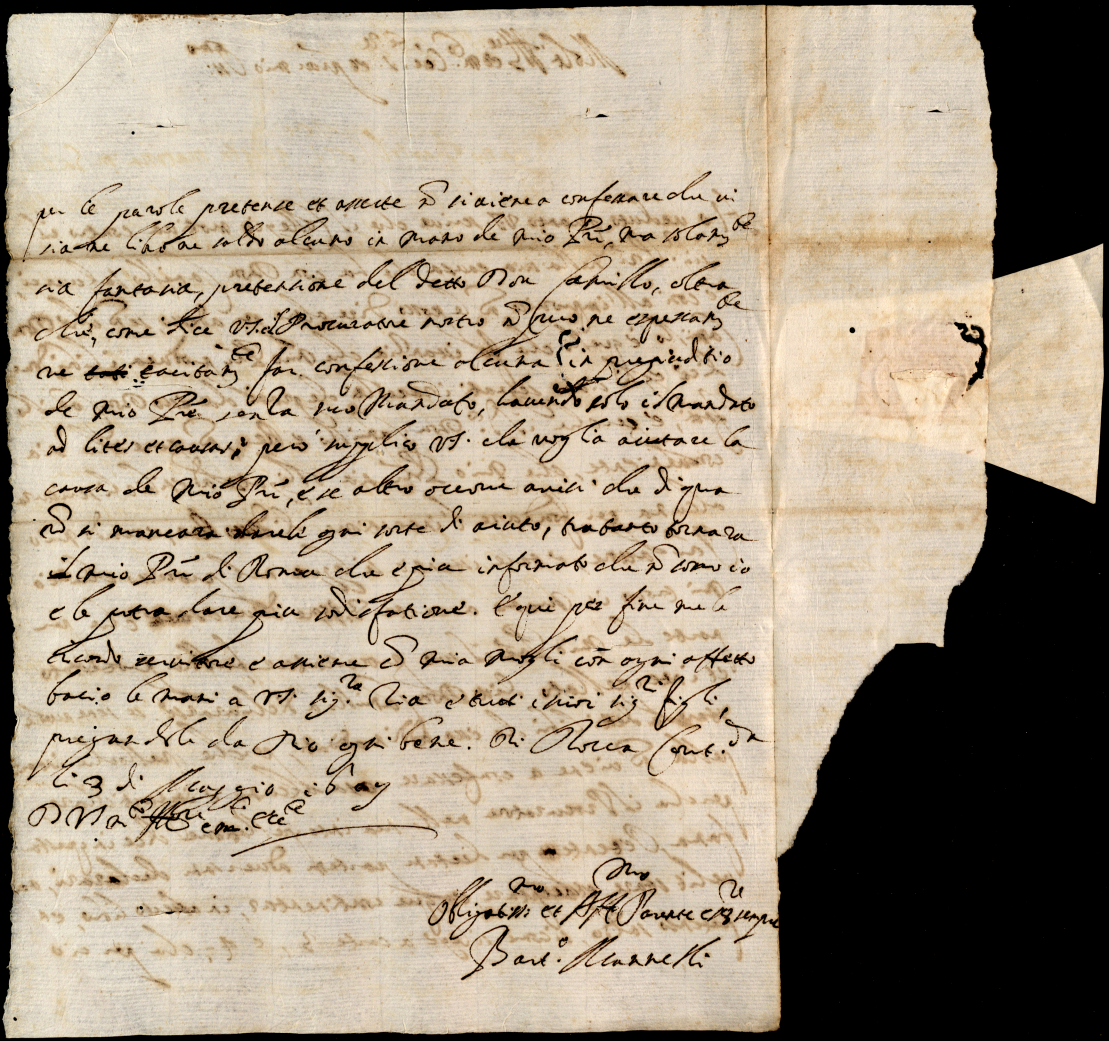 per le parole pretense et asserte nō si viene a confessare che vi
sia ne libri ne soldo alcuno in mano de mio Prē, ma solam.te
sia fantasia, pretensione del detto Don Camillo, oltra
che, come dice VS. il Procuratore nostro nō puo ne espressam.te
ne tacitam.te far confessione alcuna in pregiuditio
de mio Prē senza suo Mandato, havendo solo il Mandato
ad lites et causas; però supplico VS. che voglia aiutare la
causa de mio Prē, e se altro occorre avisi che di qua
nō si mancarà darli ogni sorte di aiuto, tratanto tornarà
il mio Prē di Roma che e piu informato che nō sono io
e le potra dare piu sodisfatione. E qui per fine me le
ricordo servitore e assieme cō mia mogli con ogni affetto
bacio le mani a VS. sig.ra Zia e tutti i suoi sig.ri figli,
pregandoli da Dio ogni bene. Di Rocca Cont.da
li 3 di Maggio
D VS m.to
Obligatiss.mo et Aff.mo Parente e ser.re sempre
Bart.o Mannelli